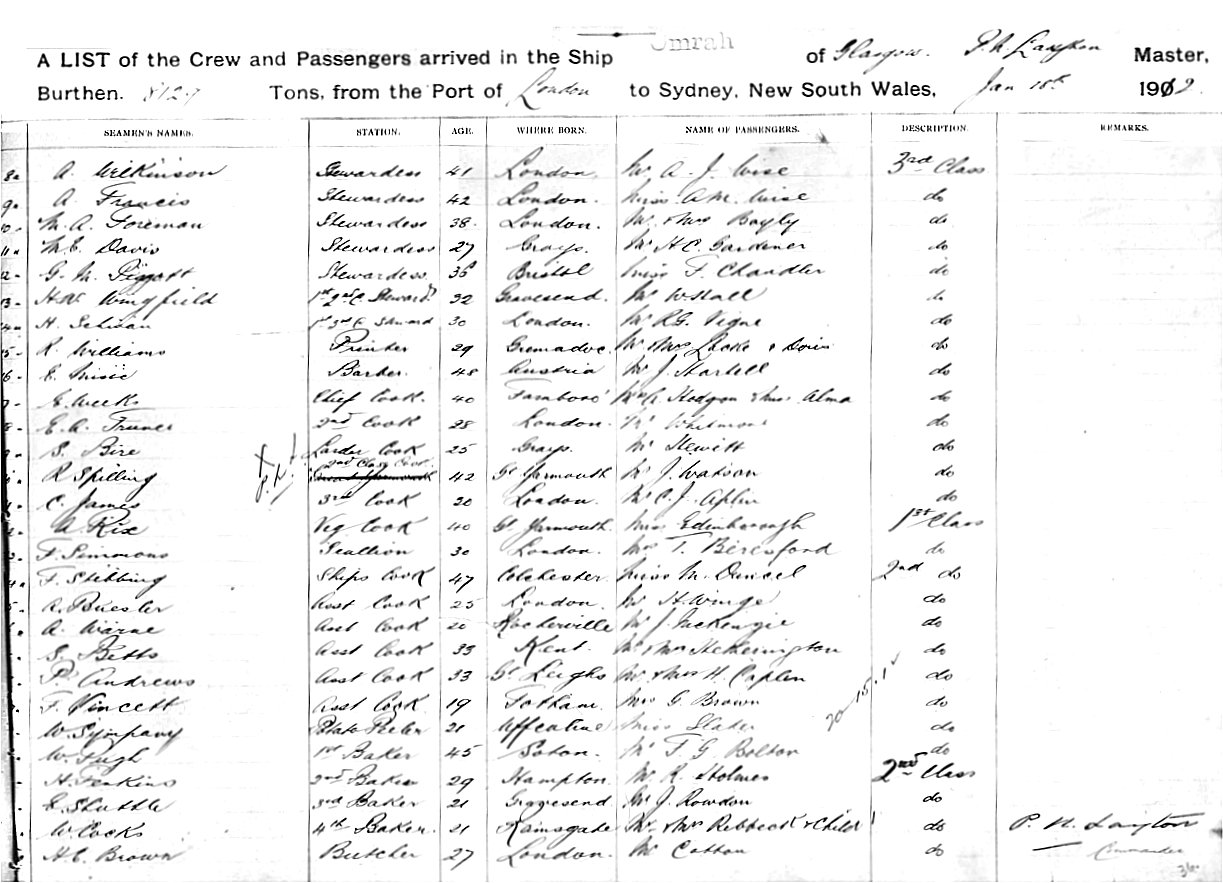 Omrah
A LIST of the Crew and Passengers arrived in the Ship of Glasgow. P.N. Layton Master,
Burthen. 8127 Tons, from the Port of London to Sydney, New South Wales, Jan 18th 1902.
SEAMEN'S NAMES. STATION. AGE. WHERE BORN. NAME OF PASSENGERS. DESCRIPTION. REMARKS.
A. Wilkinson Stewardess 41 London. Mr A. J. Wise 3rd Class
A. Francis Stewardess 42 London. Miss A.M. Wise do
M. A. Foreman Stewardess 38. London. Mr & Mrs Bayly do
M.E. Davis Stewardess 27 Grays. Mr H.C. Gardener do
G. M. Piggott Stewardess. 35 Bristol Miss F. Chandler do
H.W. Wingfield 1st 2nd C. Steward 32 Gravesend. Mr Wstall do
H. 1st 3rd C Steward 30 London. Mr R.G. Vigne do
R. Williams Printer 29 Mr & Mrs Locke & Doris do
E. Barber. 48 Austria Mr J. Hartell do
E. Weeks Chief Cook. 40 Farnboro' Hodgson & Miss Alma do
E.A. Turner 2nd Cook 28 London. Mr Whitmore do
S. Bire Larder Cook 25 Grays. Mr Hewitt do
R. Spilling 2nd Class Cook 42 Gt Yarmouth Mr J. Watson do
C. James 3rd Cook 20 London. Mr C. J. Aplin do
A. Rix Veg Cook 40 Gt Yarmouth. Miss Edinborough 1st Class
F. Simmons Scullion 30 London. Mrs T. Beresford do
F. Stebbing Ships Cook 47 Colchester. Miss M. Duncel 2nd do
A. Buesler Asst Cook 25 London. Mr H. Winge do
A. Warne Asst Cook 20 Rosherville Mr J. McKenzie do
S. Betts Asst Cook 33 Kent. Mr & Mrs Hetherington do
P. Andrews Asst Cook 33 Gt Leighs Mr & Mrs H. Caplin do
F. Vincett Asst Cook 19 Totham. Mrs G. Brown do
W. Sympany Potato Peeler 21 Miss Slater do
W. Pugh 1st Baker 45 Soton. Mr F. G. Bolton do
H. Jenkins 2nd Baker 29 Hampton. Mr R. Holmes 2nd Class
E. Shuttle 3rd Baker 21 Gravesend Mr J. Rowdon do
W. Cocks 4th Baker. 21 Ramsgate Mr & Mrs Rebbeck & Child do P. N. Layton
H.E. Brown Butcher 27 London. Mr Cotton do Commander